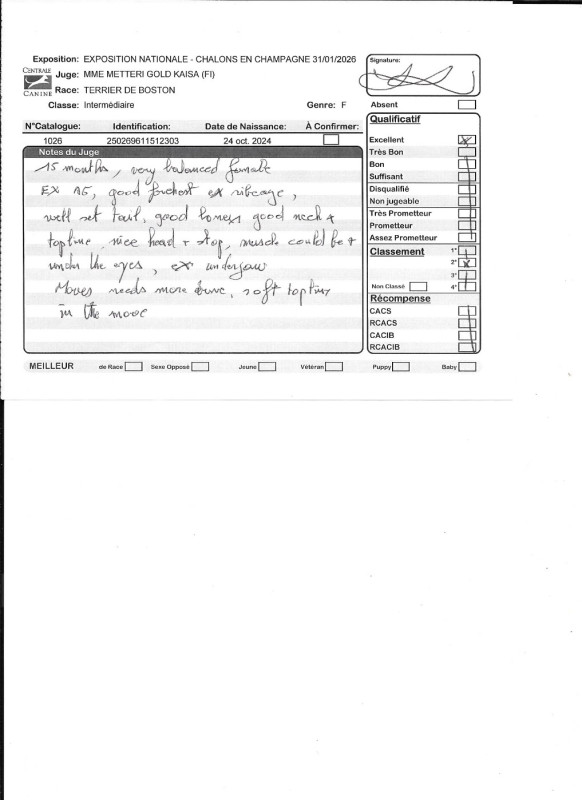 Exposition: EXPOSITION NATIONALE - CHALONS EN CHAMPAGNE 31/01/2026
CENTRALE CANINE
Juge: MME METTERI GOLD KAISA (FI)
Race: TERRIER DE BOSTON
Classe: Intermédiaire Genre: F
N°Catalogue: Identification: Date de Naissance: À Confirmer:
1026 250269611512303 24 oct. 2024
Notes du Juge
15 months, very balanced female
EX AG, good forchest ex ribcage,
well set tail, good bones good neck +
topline, nice head + stop, muscle could be +
under the eyes, ex underjaw
Moves needs more drive, soft topline
in the move
Signature:
Absent
Qualificatif
Excellent
Très Bon
Bon
Suffisant
Disqualifié
Non jugeable
Très Prometteur
Prometteur
Assez Prometteur
Classement 1°
2°
3°
Non Classé 4°
Récompense
CACS
RCACS
CACIB
RCACIB
MEILLEUR de Race Sexe Opposé Jeune Vétéran Puppy Baby